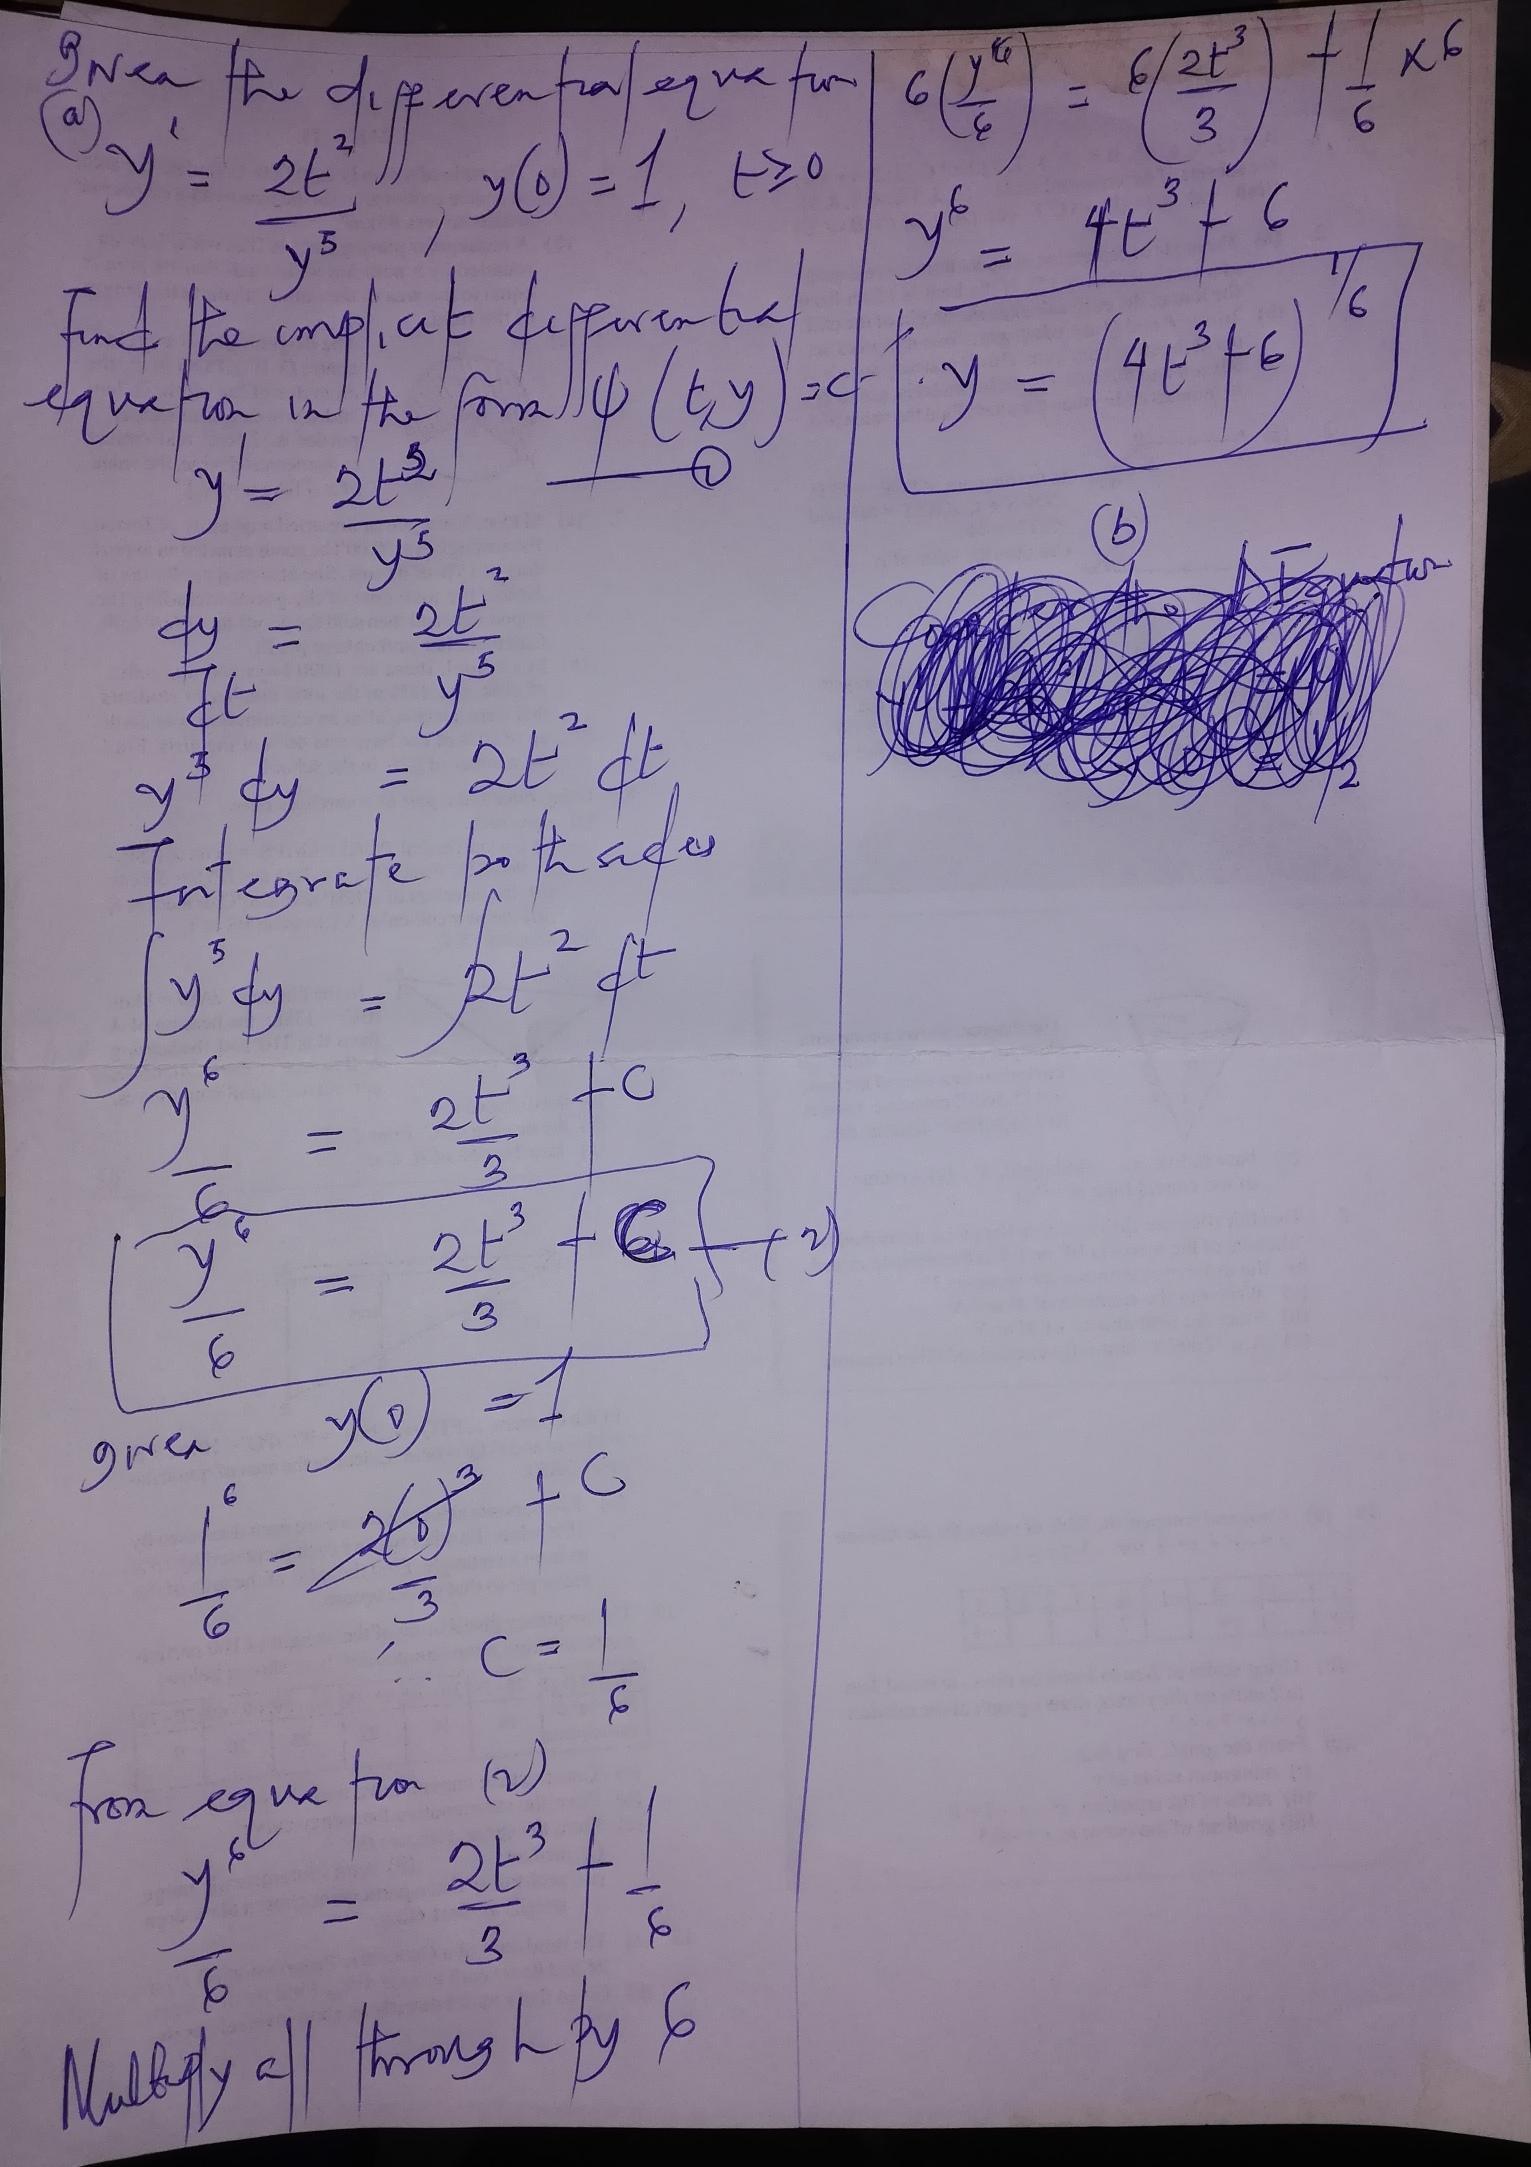 Given the differential equation
(a) y' = 2t²/y⁵, y(0) = 1, t≥0
Find the implicit differential
equation in the form ψ(t,y) = c
y' = 2t²/y⁵ —— ①
dy/dt = 2t²/y⁵
y⁵ dy = 2t² dt
Integrate both sides
∫y⁵ dy = ∫2t² dt
y⁶/6 = 2t³/3 + C
y⁶/6 = 2t³/3 + C —(2)
given y(0) = 1
1⁶/6 = 2(0)³/3 + C
∴ C = 1/6
From equation (2)
y⁶/6 = 2t³/3 + 1/6
Multiply all through by 6
6(y⁶/6) = 6(2t³/3) + 1/6 × 6
y⁶ = 4t³ + 6
∴ y = (4t³ + 6)^1/6
(b)